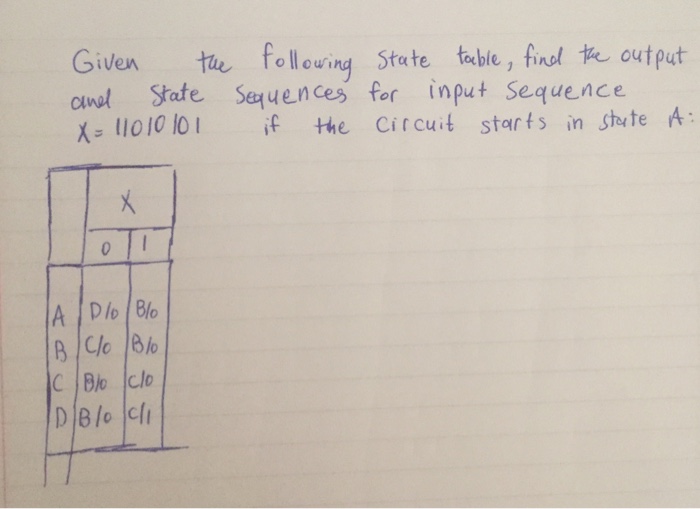 Given the following State table, find the output
and State Sequences for input Sequence
X= 11010101 if the Circuit starts in state A:
X
0 1
A D/0 B/0
B C/0 B/0
C B/0 C/0
D B/0 C/1